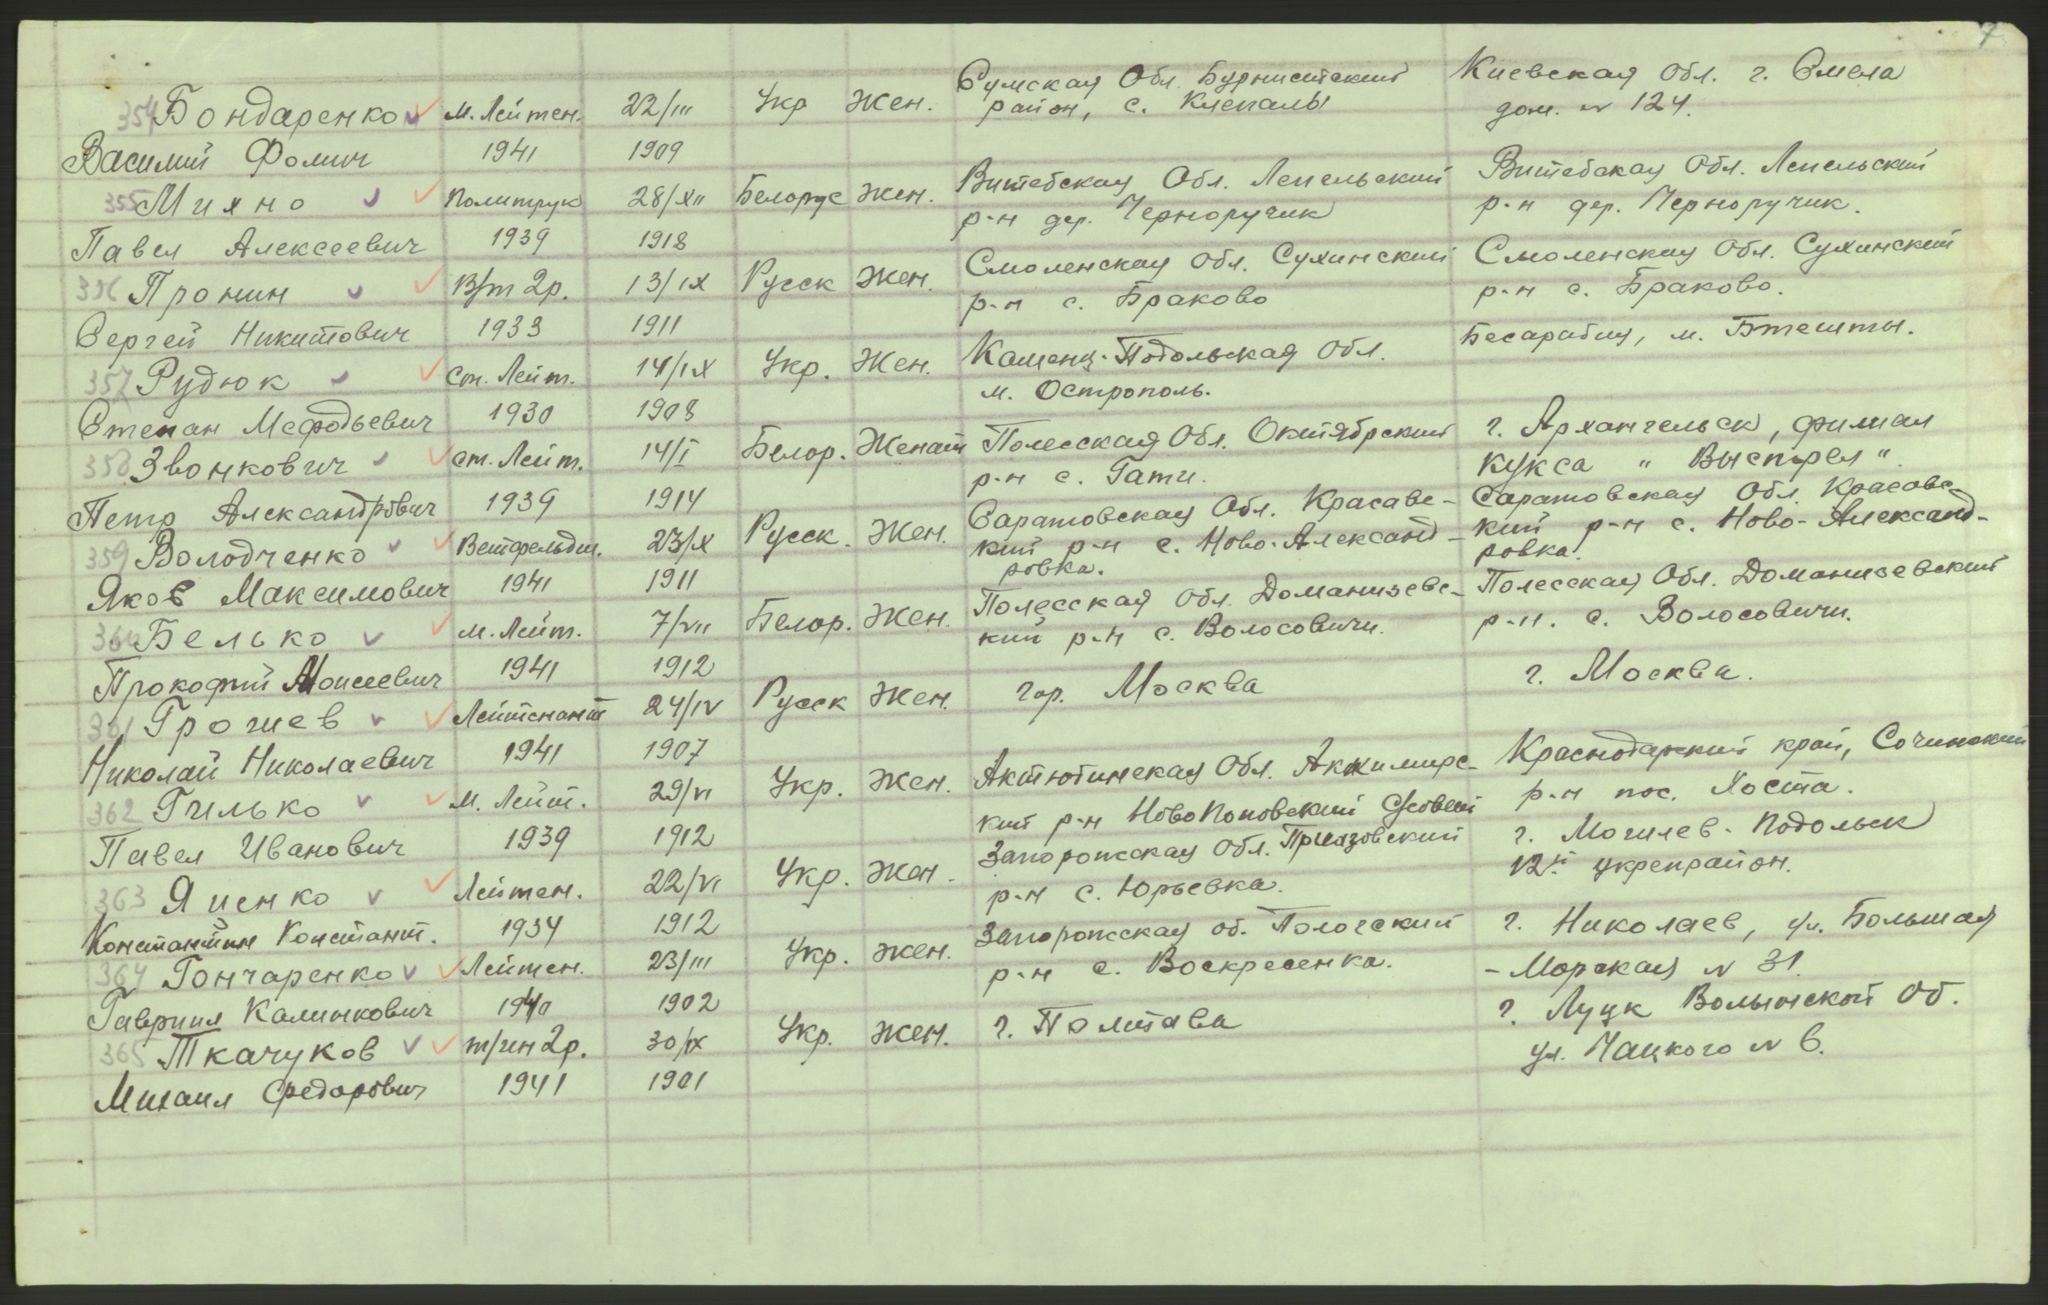 7
354 Бондаренко м. Лейтен. 22/III Укр Жен. Сумская Обл. Бурынский Киевская Обл. г. Смела
район, с. Клепалы дом. № 124.
Василий Фомич 1941 1909
355 Михно Политрук 28/XII Белорус Жен. Витебская Обл. Лепельский Витебская Обл. Лепельский
р-н дер. Черноручик р-н дер. Черноручик.
Павел Алексеевич 1939 1918
356 Пронин В/т 2р. 13/IX Русск Жен. Смоленская Обл. Сухинский Смоленская Обл. Сухинский
р-н с. Браково р-н с. Браково.
Сергей Никитович 1933 1911
357 Рудюк ст. Лейт. 14/IX Укр. Жен. Каменц-Подольская Обл. Бесарабия, м. Бтешты.
м. Острополь.
Степан Мефодьевич 1930 1908
358 Звонкович ст. Лейт. 14/I Белор. Женат Полесская Обл. Октябрский г. Архангельск, филиал
р-н с. Гати. кукса "Выстрел".
Петр Александрович 1939 1914
359 Володченко Ветфельдш. 23/X Русск. Жен. Саратовская Обл. Красавс- Саратовская Обл. Красавс-
кий р-н с. Ново-Александ- кий р-н с. Ново-Александ-
ровка. ровка.
Яков Максимович 1941 1911
360 Белько м. Лейт. 7/VII Белор. Жен. Полесская Обл. Доманизевс- Полесская Обл. Доманизевский
кий р-н с. Волосовичи. р-н. с. Волосовичи.
Прокофий Моисеевич 1941 1912
361 Грочиев Лейтенант 24/IV Русск Жен. гор. Москва г. Москва.
Николай Николаевич 1941 1907
362 Гилько м. Лейт. 29/VI Укр. Жен. Актютинская Обл. Акжимирс- Краснодарский край, Сочинский
кий р-н НовоПоповский с/совет р-н пос. Хоста.
Павел Иванович 1939 1912
363 Яценко Лейтен. 22/VI Укр. Жен. Запорожская Обл. Приазовский г. Могилев-Подольск
р-н с. Юрьевка. 12й укрепрайон.
Константин Констант. 1934 1912
364 Гончаренко Лейтен. 23/III Укр. Жен. Запорожская об. Пологский г. Николаев, ул. Большая
р-н с. Воскресенка. -Морская № 31.
Гавриил Калинкович 1940 1902
365 Ткачуков т/ин 2р. 30/IX Укр. Жен. г. Полтава г. Луцк Волынской Об.
ул. Чацкого № 6.
Михаил Федорович 1941 1901